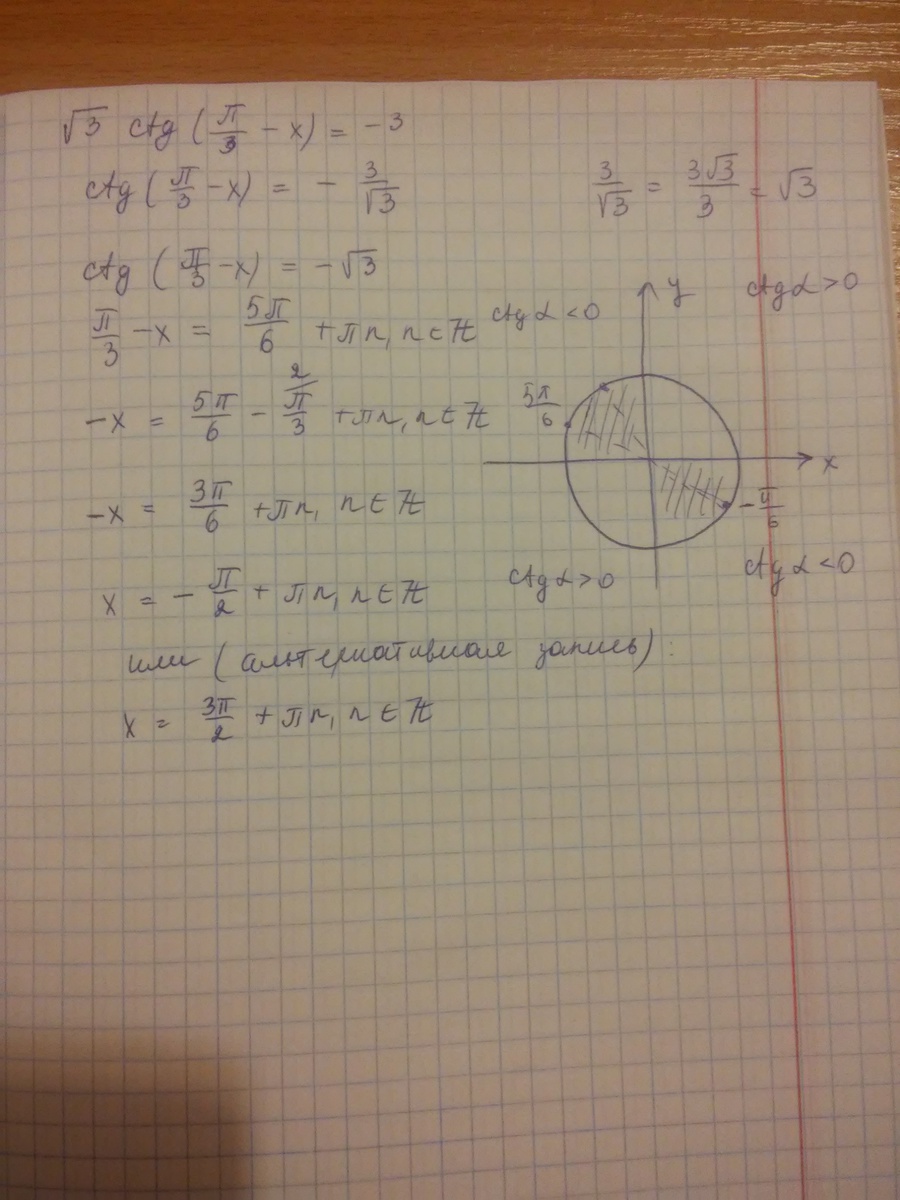 √3 ctg (π/3 − x) = −3
ctg (π/3 − x) = − 3/√3
3/√3 = 3√3/3 = √3
ctg (π/3 − x) = −√3
π/3 − x = 5π/6 + πn, n ∈ ℤ
−x = 5π/6 − π/3 2/ + πn, n ∈ ℤ
−x = 3π/6 + πn, n ∈ ℤ
x = − π/2 + πn, n ∈ ℤ
или (альтернативная запись):
x = 3π/2 + πn, n ∈ ℤ
y
ctg α > 0
ctg α < 0
5π/6
x
−π/6
ctg α > 0
ctg α < 0